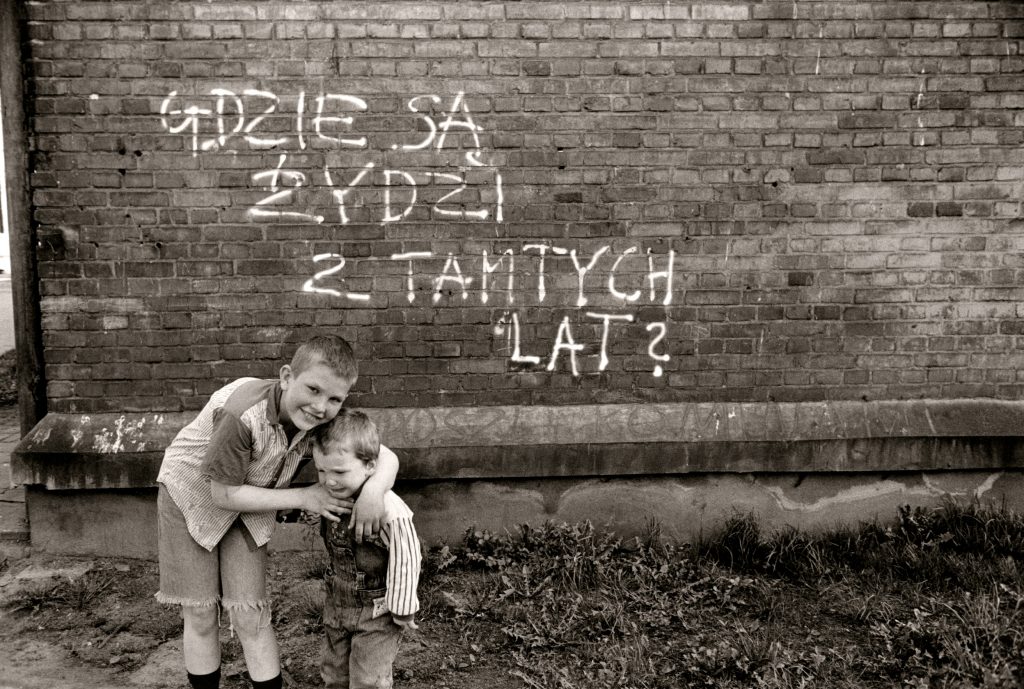 GDZIE SĄ
ŻYDZI
Z TAMTYCH
LAT?